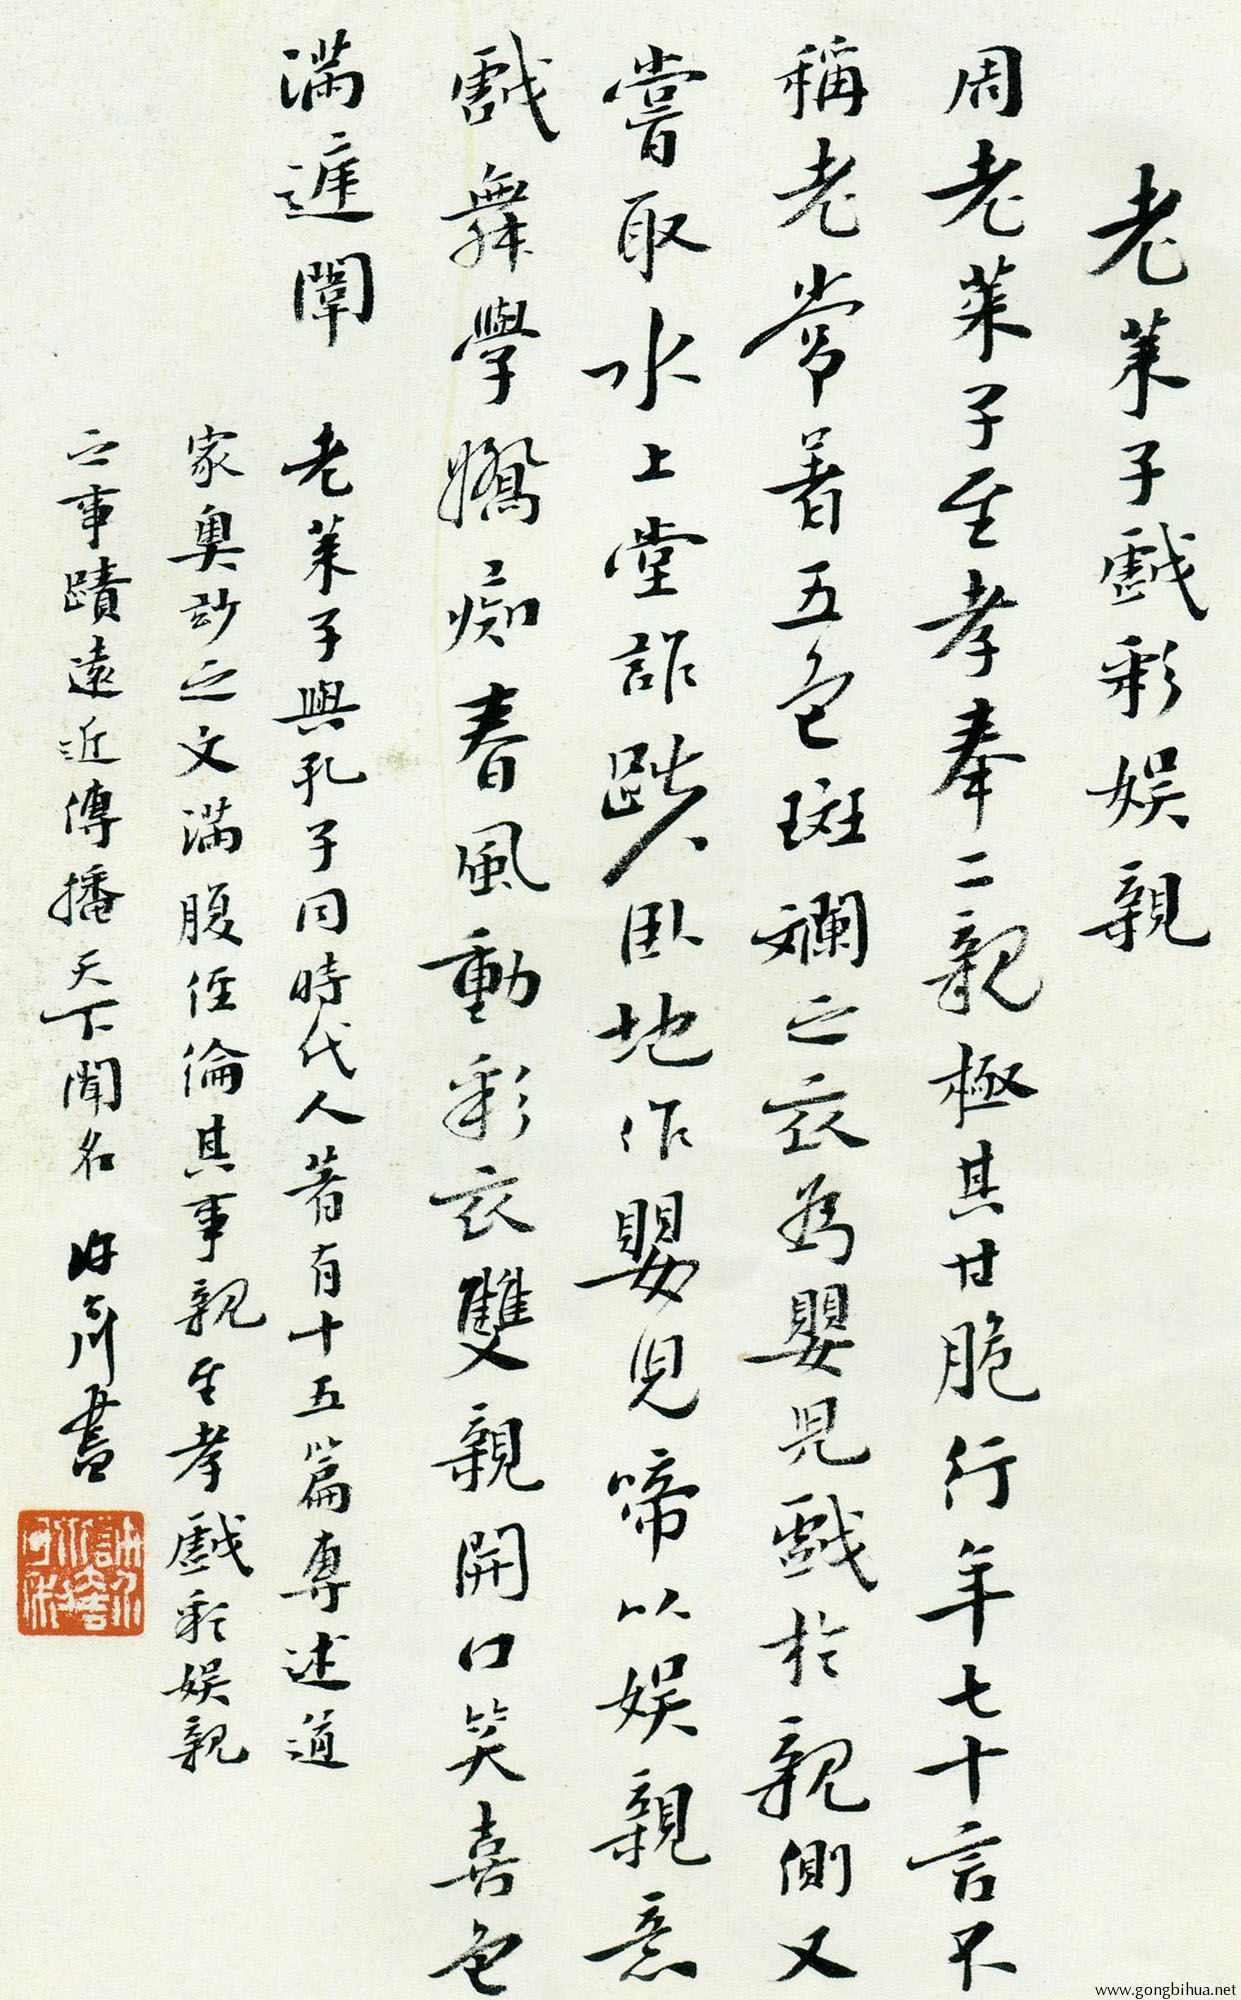 老萊子戲彩娛親
周老萊子至孝奉二親極其甘脆行年七十言不
稱老常著五色斑斕之衣為嬰兒戲於親側又
嘗取水上堂詐跌臥地作嬰兒啼以娛親意
戲舞學嬌痴春風動彩衣雙親開口笑喜色
滿遲闈
老萊子與孔子同時代人著有十五篇專述道
家奧妙之文滿腹經倫其事親至孝戲彩娛親
之事蹟遠近傳播天下聞名 書
www.gongbihua.net